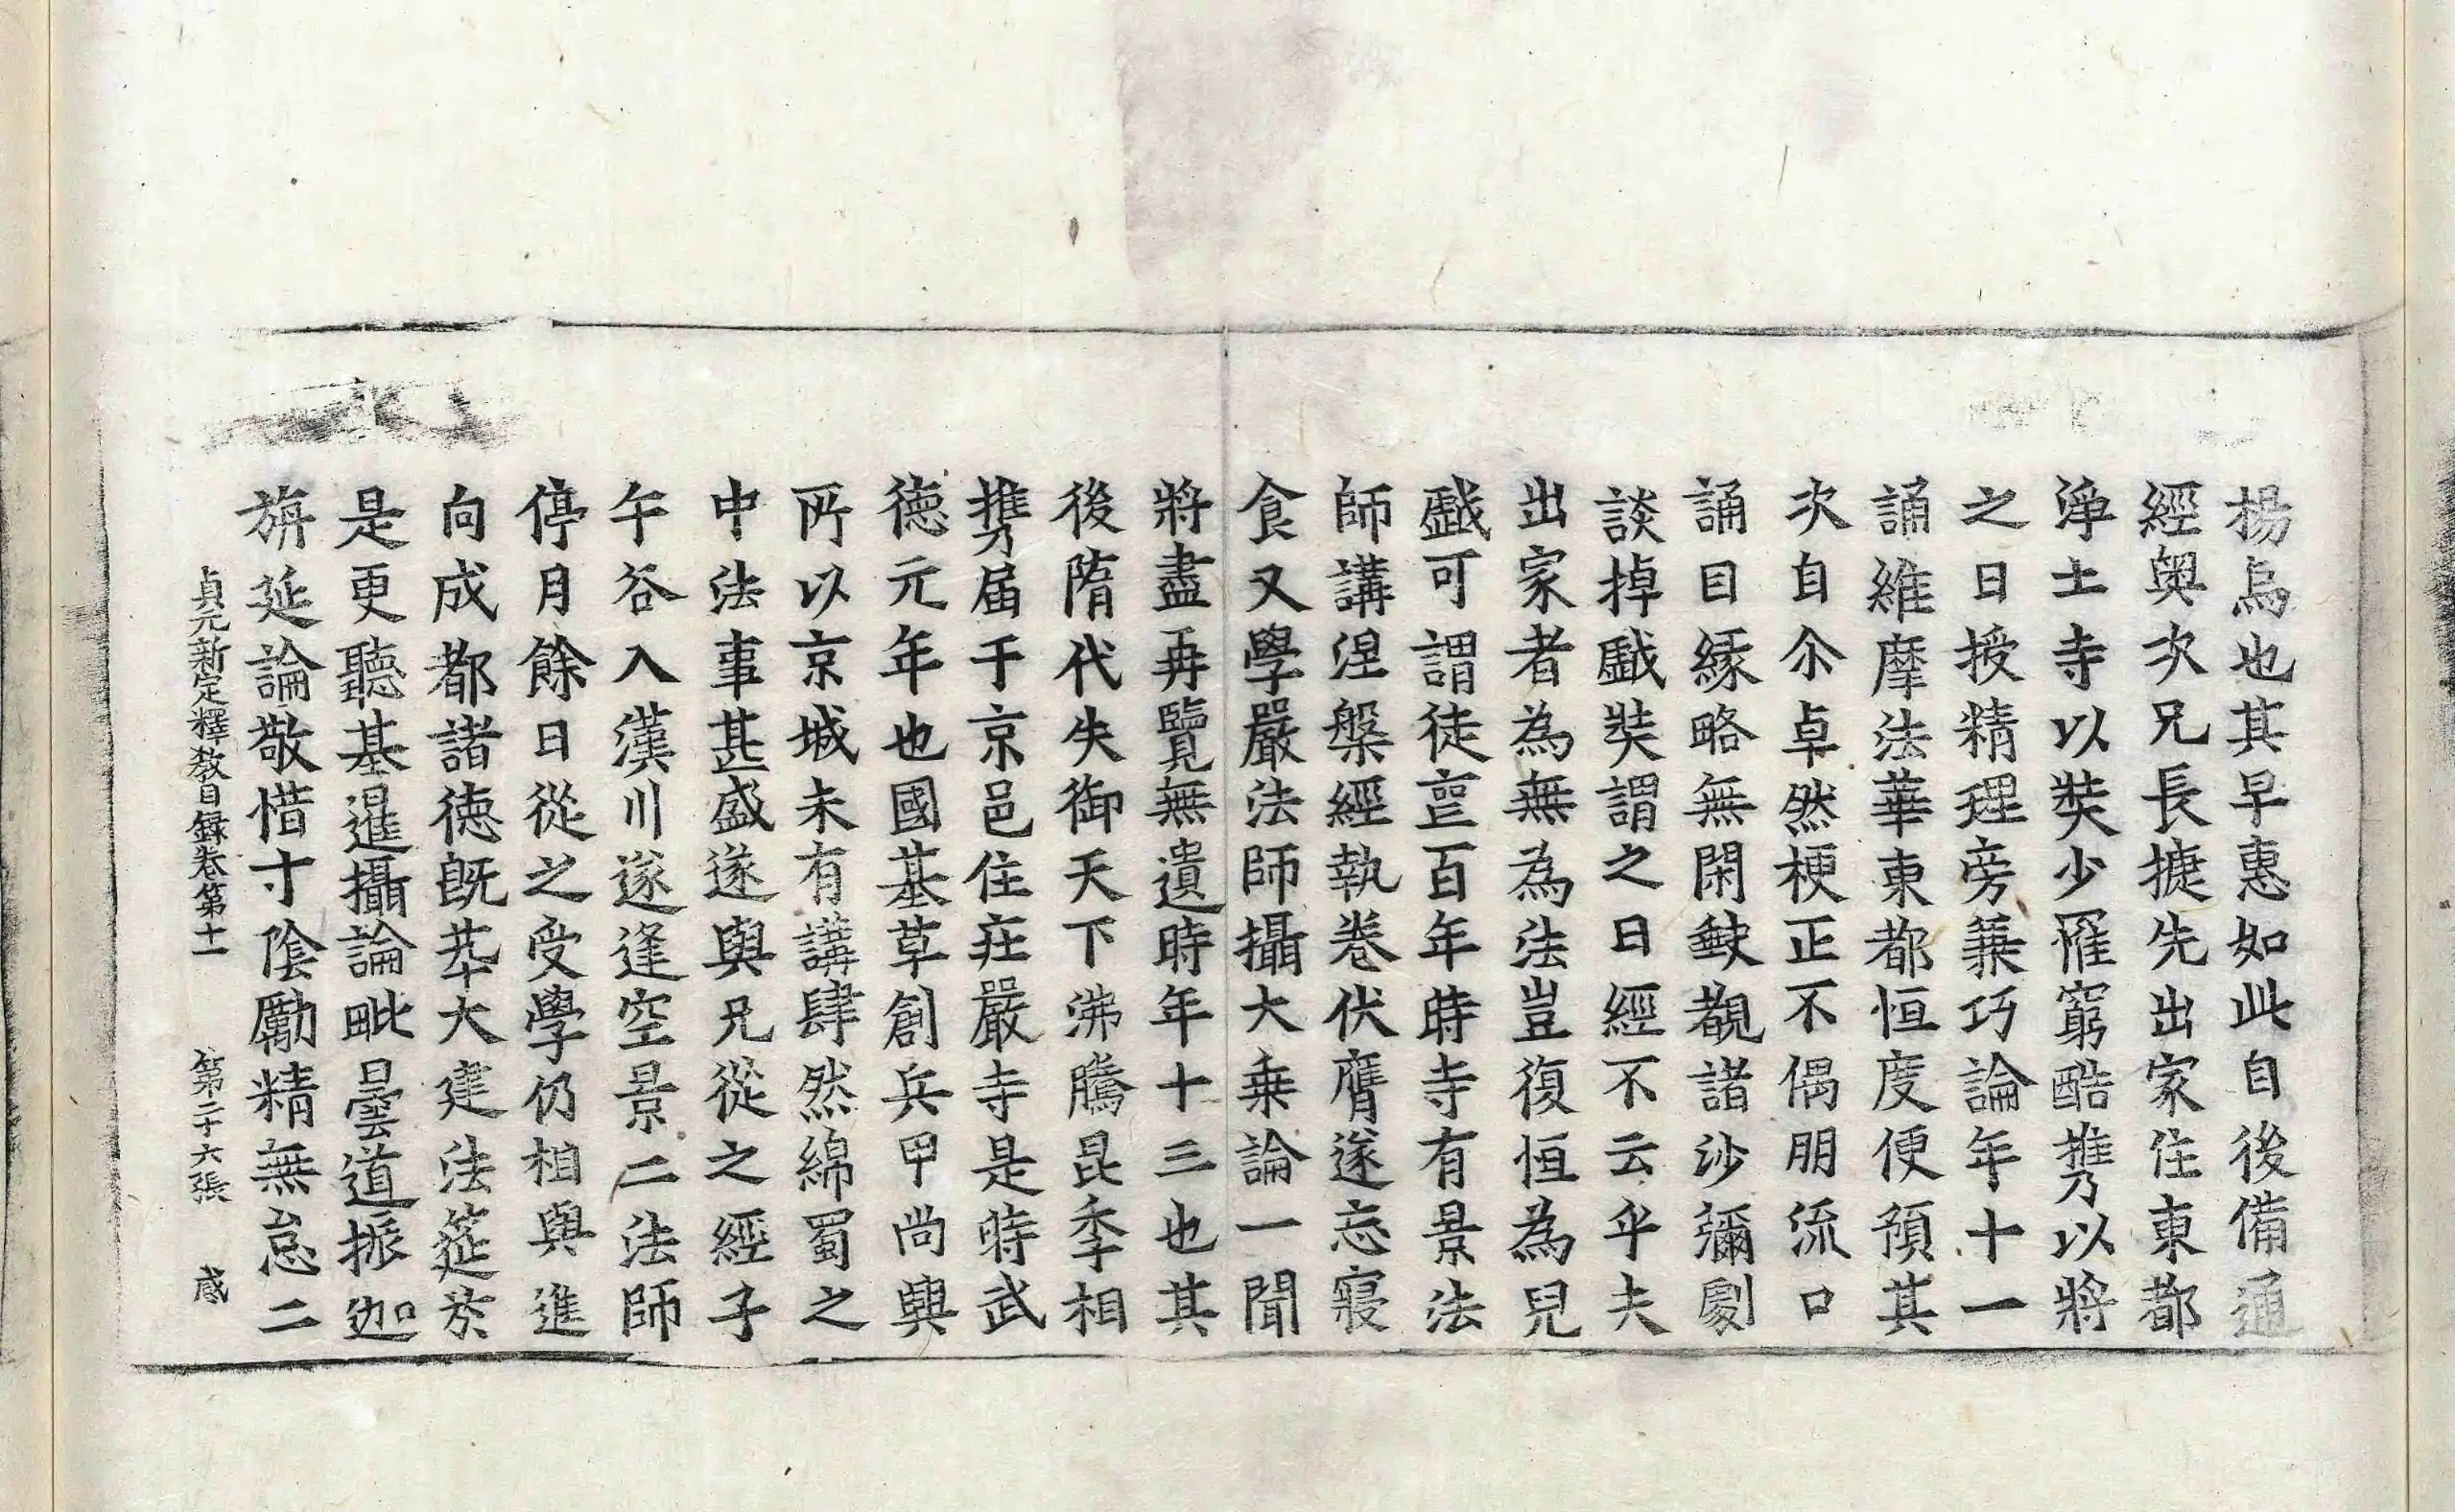 揚烏也其早惠如此自後備通
經奧次兄長捷先出家住東都
淨土寺以奘少罹窮酷携以將
之日授精理旁兼巧論年十一
誦維摩法華東都恒度便預其
次自尒卓然梗正不偶朋流口
誦目緣略無閑缺覩諸沙彌劇
談掉戲奘謂之曰經不云乎夫
出家者為無為法豈復恒為兒
戲可謂徒喪百年時寺有景法
師講涅槃經執卷伏膺遂忘寢
食又學嚴法師攝大乘論一聞
將盡再覽無遺時年十三也其
後隋代失御天下沸騰昆季相
携届于京邑住莊嚴寺是時武
德元年也國基草創兵甲尚興
所以京城未有講肆然綿蜀之
中法事甚盛遂與兄從之經子
午谷入漢川遂逢空景二法師
停月餘日從之受學仍相與進
向成都諸德旣萃大建法筵於
是更聽基暹攝論毗曇道振迦
旃延論敬惜寸陰勵精無怠二
貞元新定釋教目錄卷第十一 第二十六張 感